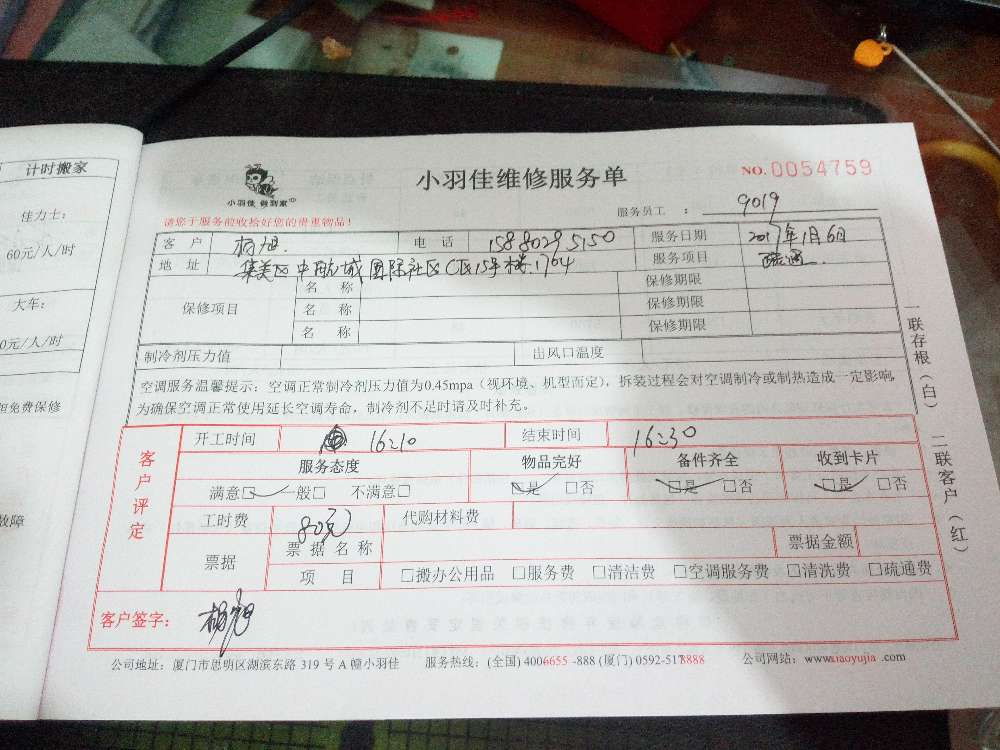 计时搬家
佳力士：
60元/人/时
大车：
0元/人/时
担免费保修
故障
小羽佳 做到家
小羽佳维修服务单
NO.0054759
请您于服务前收拾好您的贵重物品！
服务员工 ： 9019
客 户 杨旭 电 话 15880295150 服务日期 2017年1月6日
地 址 集美区中航城国际社区C区15号楼1704 服务项目 疏通
保修项目
名 称 保修期限
名 称 保修期限
名 称 保修期限
制冷剂压力值 出风口温度
空调服务温馨提示：空调正常制冷剂压力值为0.45mpa（视环境、机型而定），拆装过程会对空调制冷或制热造成一定影响，
为确保空调正常使用延长空调寿命，制冷剂不足时请及时补充。
一联存根（白）
二联客户（红）
客户评定
开工时间 16:10 结束时间 16:30
服务态度 物品完好 备件齐全 收到卡片
满意□ 一般□ 不满意□ □是 □否 □是 □否 □是 □否
工时费 80元 代购材料费
票据
票 据 名 称 票据金额
项 目 □搬办公用品 □服务费 □清洁费 □空调服务费 □清洗费 □疏通费
客户签字： 杨旭
公司地址：厦门市思明区湖滨东路 319 号 A 幢小羽佳 服务热线：(全国) 4006655 -888 (厦门) 0592-5178888 公司网站：www.xiaoyujia .com